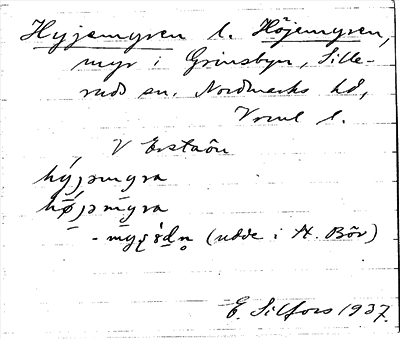 Hyjemyren l. Höjemyren,
myr i Grinsbyn, Sille-
ruds sn. Nordmarks hd,
Vrml l.
V
hýjəmyra
hǿjəmyra
(udde i St. Bör)
E. Silfors 1937.